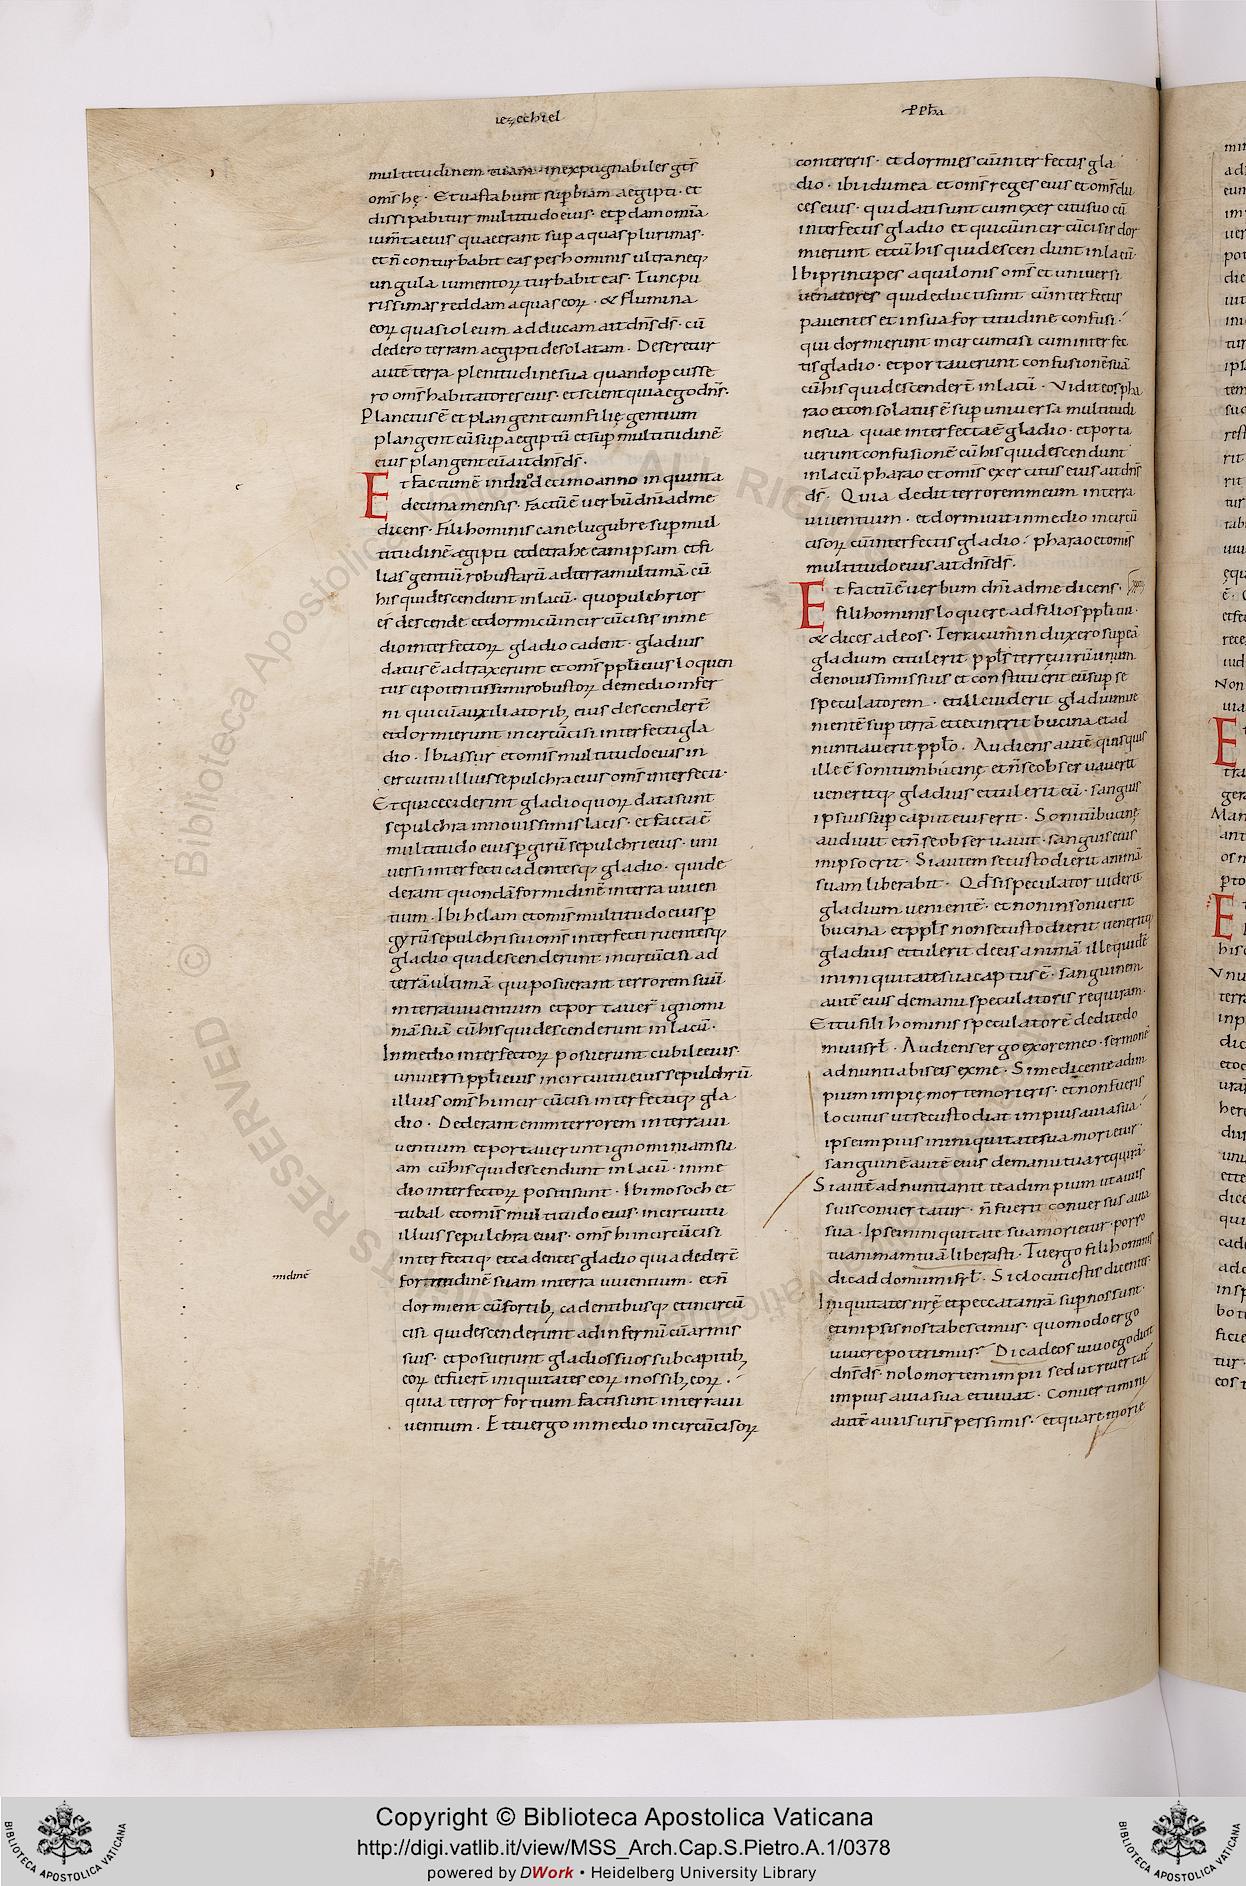 iezechiel
PPha
multitudinem tuam · inexpugnabiles gt̄s
om̄s hę · Et vastabunt supbiam aegipti · et
dissipabitur multitudo eius · et pdam omīa
ium̄ta eius quae erant sup aquas plurimas ·
et n̄ conturbabit eas pes hominis ultra neq;
ungula iumentoꝝ turbabit eas · Tunc pu
rissimas reddam aquas eoꝝ · & flumina
eoꝝ quasi oleum adducam ait dn̄s ds̄ · cū
dedero terram aegipti desolatam · Deseretur
autē terra plenitudine sua quando pcusse
ro om̄s habitatores eius · et scient quia ego dn̄s ·
Planctus ē et plangent eum filię gentium
plangent eū sup aegiptū et sup multitudinē
eius plangent eū ait dn̄s ds̄ ·
Et factum ē in duodecimo anno in quinta
decima mensis · Factū ē verbū dn̄i ad me
dicens · Fili hominis cane lugubre sup mul
titudinē aegipti et detrahe eam ipsam et fi
lias gentiū robustarū ad terram ultimā cū
his qui descendunt in lacū · quo pulchrior
es descende et dormi cū incircūcisis in me
dio interfectoꝝ gladio cadent · gladius
datus ē adtraxerunt et om̄s ppl̄i eius loquen
tur ei potentissimi robustoꝝ de medio infer
ni qui cū auxiliatorib; eius descender̄t
et dormierunt incircūcisi interfecti gla
dio · Ibi assur et omis̄ multitudo eius in
circuitu illius sepulchra eius om̄s interfecti ·
Et qui ceciderint gladio quoꝝ data sunt
sepulchra in novissimis lacis · et facta ē
multitudo eius p girū sepulchri eius · uni
versi interfecti cadentesq; gladio · qui de
derant quondā formidinē in terra viven
tium · Ibi helam et omis̄ multitudo eius p
gyrū sepulchri sui om̄s interfecti ruentesq;
gladio qui descenderunt incircūcisi ad
terrā ultimā qui posuerant terrorem suū
in terra viventium et portaver̄ ignomi
niā suā cū his qui descenderunt in lacū ·
In medio interfectoꝝ posuerunt cubile eius ·
universi ppl̄i eius in circuitu eius sepulchrū
illius om̄s hi incircūcisi interfectiq; gla
dio · Dederant enim terrorem in terra vi
ventium et portaverunt ignominiam su
am cū his qui descendunt in lacū · in me
dio interfectoꝝ positi sunt · Ibi mosoch et
tubal et omis̄ multitudo eius · in circuitu
illius sepulchra eius · om̄s hi incircūcisi
interfectiq; et cadentes gladio quia deder̄t
formidinē suam in terra viventium · et n̄
midinē
dormient cū fortib; cadentibusq; et incircū
cisi qui descenderunt ad infernū cū armis
suis · et posuerunt gladios suos sub capitib;
eoꝝ et fuer̄t iniquitates eoꝝ in ossib; eoꝝ ·
quia terror fortium facti sunt in terra vi
ventium · Et tu ergo in medio incircūcisoꝝ
contereris · et dormies cū interfectis gla
dio · ibi idumea et om̄s reges eius et om̄s du
ces eius · qui dati sunt cum exercitu suo cū
interfectis gladio et qui cū incircūcisis dor
mierunt et cū his qui descendunt in lacū ·
Ibi principes aquilonis om̄s et universi
venatores qui deducti sunt cū interfectis
paventes et in sua fortitudine confusi ·
qui dormierunt incircumcisi cum interfec
tis gladio · et portaverunt confusionē suā
cū his qui descender̄t in lacū · Vidit eos pha
rao et consolatus ē sup universa multitudi
ne sua quae interfecta ē gladio · et porta
verunt confusionē cū his qui descendunt
in lacū pharao et omis̄ exercitus eius ait dn̄s
ds̄ · Quia dedit terrorem meum in terra
viventium · et dormivit in medio incircū
cisoꝝ cū interfectis gladio · pharao et omis̄
multitudo eius ait dn̄s ds̄ ·
Et factū ē verbum dn̄i ad me dicens ·
fili hominis loquere ad filios ppl̄i tui ·
& dices ad eos · Terra cum induxero sup eā
gladium et tulerit ppl̄s terrę virū unum
de novissimis suis et constituerit eū sup se
speculatorem · et ille viderit gladium ve
nientē sup terrā et cecinerit bucina et ad
nuntiaverit ppl̄o · Audiens autē quisquis
ille ē sonitum bucinę et n̄ se observaverit
veneritq; gladius et tulerit eū · sanguis
ipsius sup caput eius erit · Sonitū bucinę
audivit et n̄ se observavit · sanguis eius
in ipso erit · Si autem se custodierit animā
suam liberabit · Qd̄ si speculator viderit
gladium venientē · et non insonuerit
bucina · et ppl̄s non se custodierit veneritq;
gladius et tulerit de eis animā · ille quidē
in iniquitate sua captus ē · sanguinem
autē eius de manu speculatoris requiram ·
Et tu fili hominis speculatorē dedi te do
mui isrl̄ · Audiens ergo ex ore meo · sermonē
adnuntiabis eis ex me · Si me dicente ad im
pium impię morte morieris · et non fueris
locutus ut se custodiat impius a via sua ·
ipse impius in iniquitate sua morietur ·
sanguinē autē eius de manu tua requirā ·
Si autē adnuntiante te ad impium ut a viis
suis convertatur · n̄ fuerit conversus a via
sua · Ipse in iniquitate sua morietur · porro
tu animam tuā liberasti · Tu ergo fili hominis
dic ad domum isrl̄ · Sic locuti estis dicentes ·
Iniquitates nr̄ę et peccata nr̄a sup nos sunt ·
et in ipsis nos tabescimus · quomodo ergo
vivere poterimus · Dic ad eos vivo ego dicit
dn̄s ds̄ · nolo mortem impii sed ut revertat̄
impius a via sua et vivat · Convertimini
autē a viis vr̄is pessimis · et quare morie
Copyright © Biblioteca Apostolica Vaticana
http://digi.vatlib.it/view/MSS_Arch.Cap.S.Pietro.A.1/0378
powered by DWork • Heidelberg University Library